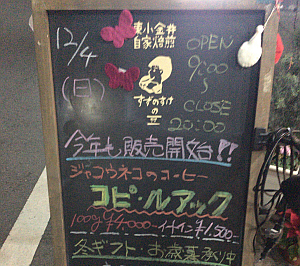 12/4
(日)
東小金井
自家焙煎
すずのすけ
の豆
OPEN
9:00
〜
CLOSE
20:00
今年も販売開始!!
ジャコウネコのコーヒー
コピ・ルアック
100g ¥4000- イートイン ¥1,500-
冬ギフト・お歳暮承り中